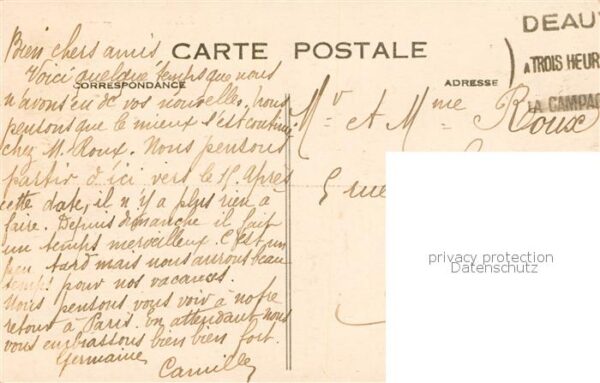 Bien chers amis
CARTE POSTALE
Voici quelque temps que nous
CORRESPONDANCE
n'avons eu de vos nouvelles. Nous
pensons que le mieux s'est continué
chez M. Roux. Nous pensons
partir d'ici vers le 15. Après
cette date, il n'y a plus rien à
faire. Depuis dimanche il fait
un temps merveilleux. C'est un
peu tard mais nous aurons beau
temps pour nos vacances.
Nous pensons vous voir à notre
retour à Paris. En attendant nous
vous embrassons bien bien fort.
Germaine
Camille
DEAU
A TROIS HEUR
LA CAMPAG
ADRESSE
Mr et Mme Roux
5 rue
privacy protection
Datenschutz